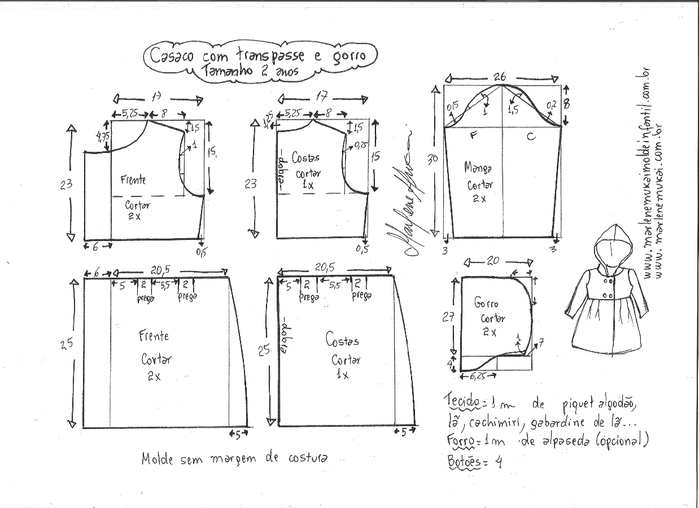 Casaco com transpasse e gorro
Tamanho 2 anos
17
5,25 8
4,75
1,5
1
15
23
Frente
Cortar
2x
6
0,5
17
5,25 8
1,5
0,25
15
23
dobra
Costas
cortar
1x
0,5
26
0,5 1 1,5 0,2
8
F C
30
Manga
Cortar
2x
3 3
www.marlenemukaimoldeinfantil.com.br
www.marlenemukai.com.br
6 20,5
5 2 5,5 2
prega prega
25
Frente
Cortar
2x
5
20,5
5 2 5,5 2
prega prega
dobra
25
Costas
Cortar
1x
5
20
27
Gorro
Cortar
2x
1 7
4
6,25
Tecido = 1m de piquet algodão,
lã, cachimiri, gabardine de lã...
Forro = 1m de alpaseda (opcional)
Botões = 4
Molde sem margem de costura